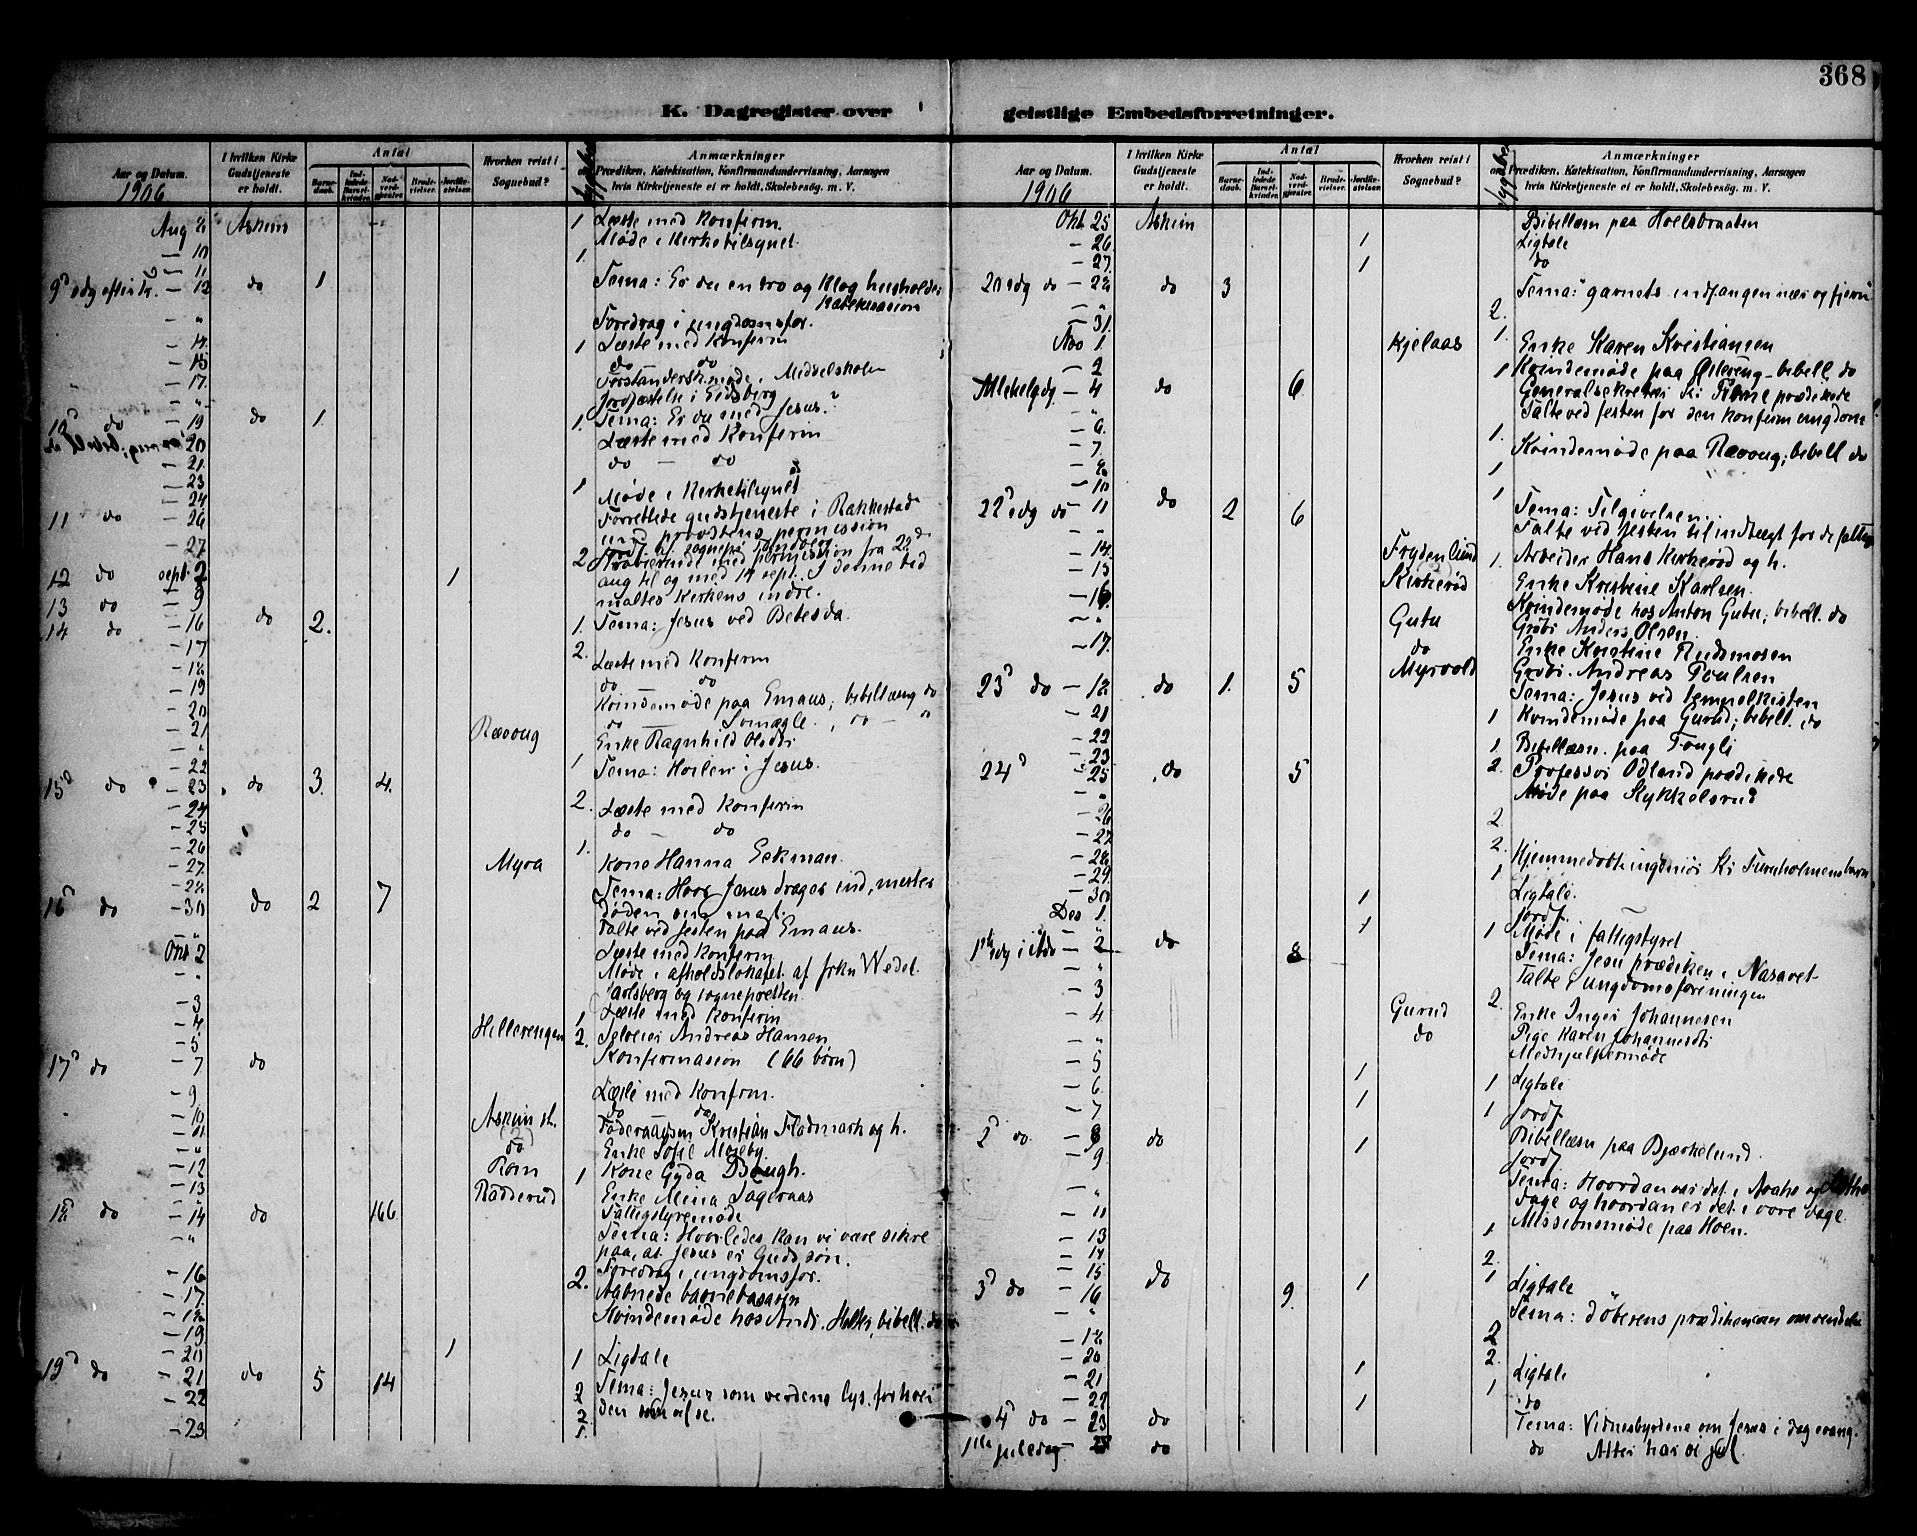 368
K. Dagregister over
Aar og Datum.
1906
I hvilken Kirke Gudstjeneste er holdt.
Antal
Barnedaab.
Indledede Barselkvinder.
Nadverdgjæster.
Brudevielser.
Jordfæstelser.
Hvorhen reist i Sognebud?
Anmærkninger
om Prædiken, Katekisation, Konfirmandundervisning, Aarsagen hvis Kirketjeneste ei er holdt, Skolebesøg. m. V.
Aug Askim 1 Læste med Konfirm.
- 10 1. Møde i Kirketilsynet.
- 11
9d sdg efter tr. - 12 do 1 Tema: Er du en tro og klog husholder
Katekisasion
- " Foredrag i ungdomsfor.
- 14. 1 Læste med Konfirm
- 15 do do
- 17. Forstandersk.møde. Middelskolen
- " Jordfæstelse i Eidsberg
do - 19 do 1. 1. Tema: Er du med Jesus?
- 20 Læste med Konfirm
- 21. do - do
- 23 1 Møde i Kirketilsynet
- 24
11 do - 26 Forrettede gudstjeneste i Rakkestad
med provstens permission
- 27 2
12 do sept. 2 1 Fraværende med permission fra 22de
aug til og med 14 sept. I denne tid
13 do - 9 maltes Kirkens indre.
14 do - 16 do 2. 1. Tema: Jesus ved Betesda.
- 17 2. Læste med Konfirm
- 18 do do
- 19 Kvindemøde paa Emaus; bibellæsng do
- 20 do - , do - "
- 21 Rævoug Enke Ragnhild
- 22 1
15d do - 23 do 3. 4. Tema: Hvilen i Jesus.
- 24 2. Læste med Konfirm
- 25 do - do
- 26 1.
- 27 Myra Kone Hanna Eekman.
- 28
16d do - 30 do 2 7 Tema: Hvor Jesus drages ind, mester
døden sin magt.
- " Talte ved festen paa Emaus.
Okt 2 Læste med Konfirm
- " Møde i afholdslokalet af frkn Wedel
Jarlsberg og sognepresten.
- 3 1 Læste med Konfirm
- 4 Hillerengen 2. Selveier Andreas Hansen
- 5
17d do - 7 do Konfirmasion (66 børn)
- 9 Læste med Konfrm.
- 10 do do
- 11 Askim st. Føderaadsm Kristian Fladmark og h.
(2)
- " do Enke Sofie Moseby.
- 12 Rom 1 Kone Gyda Baugh.
- 13 Radderud Enke Mina Sageraas
18 do - 14 do 166 Fattigstyremøde
- " Tema: Hvorledes kan vi være sikre
paa, at Jesus er Guds søn.
- 16 Foredrag i ungdomsfor.
- 17. 2. Aabnede
- 18 Kvindemøde hos Andr. , bibell. do
- 19
- 20 1 1 Ligtale
19d do - 21 do 5 14 Tema: Jesus som verdens lys, for hver
- 22 2 den som vil se.
- 23 2 1.
geistlige Embedsforretninger.
Aar og Datum.
1906
I hvilken Kirke Gudstjeneste er holdt.
Antal
Barnedaab.
Indledede Barselkvinder.
Nadverdgjæster.
Brudevielser.
Jordfæstelser.
Hvorhen reist i Sognebud?
Anmærkninger
om Prædiken, Katekisation, Konfirmandundervisning, Aarsagen hvis Kirketjeneste ei er holdt, Skolebesøg. m. V.
Okt. 25 Askim Bibellæsn paa Hoelsbraaten
- 26 1 Ligtale
- 27. 1 do
20 sdg do - 28 do 3 Tema: "garnets indfangen nær og fjern"
- " 2.
- 31.
Nov 1 Kjelaas 1. Enke Karen Kristiansen
- 2 1 Kvindemøde paa - bibell. do
Allehelgdg - 4 do 6 Generalsekretær prædikede
- " Talte ved festen for den konfirm ungdom
- 6. 1.
- 7. Kvindemøde paa Rævoug; bibell do
- 8 1
- 10 1
22d sdg do - 11 do 2 6 Tema: Tilgivelsen.
- " Talte ved festen til indtægt for de fattige
- 14. Frydenlund 1. Arbeider Hans Kirkerød og h.
(2)
- 15 Kirkerød Enke Kristine Karlsen.
- 16 Kvindemøde hos Anton Gutu; bibell. do
- " Gutu Grbr Anders Olsen.
- 17. do Enke Kristine Rudsmosen
Myrvold Grbr. Andreas Poulsen
23d do - 18 do 1. 5 Tema: Jesus ved tempelkisten
- 21 1 Kvindemøde paa Gurud; bibell. do
- 22
- 23 1. Bibellæsn. paa Fougli
24d - 25 do 5 2. Professor Odland prædikede
- " Møde paa Kykkelsrud
- 26 2
- 27
- 28 2. Hjemmedøbt
- 29 1
- 30 1 Ligtale.
Des 1. 1 Jordf.
- " 1 Møde i fattigstyret
1ste sdg i Adv - 2 do 8 Tema: Jesu prædiken i Nasaret
- " Talte i ungdomsforeningen
- 3 2.
- 4 Gurud Enke Inger Johannesen
- " do Pige Karen Johannesdtr
- 5 Medhjælpermøde
- 6 1 1 Ligtale
- 7 1 1 Jordf
2d do - 8 do Bibellæsn paa Bjærkelund.
- 9 1 Jordf
- " Tema: Hvordan var det i Noahs og Loths
dage og hvordan er det i vore dage
- 11 Missionsmøde paa Hoen.
- 13 1
- 14 2.
- 15 1 1 Ligtale
3d do - 16 do 9. Tema: Døberens prædiken om omvendelse
- "
- 18 2
- 20 2.
- 21 1 Ligtale
- 22 1 1 do
4d do - 23 do Tema: Vidnesbyrdene om Jesus i dag evang.
1ste juledag - 25 do do Atter har vi jul.